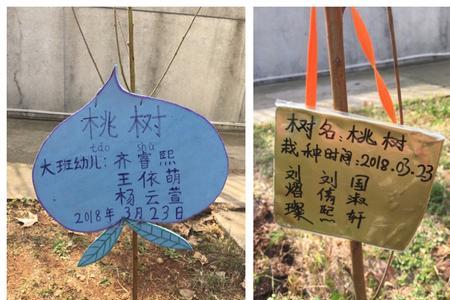 桃树
táo shù
大班幼儿：齐睿熙
王依萌
杨云萱
2018年3月23日
树名：桃树
栽种时间：2018.03.23
刘熠璨
刘倩熙
国淑轩